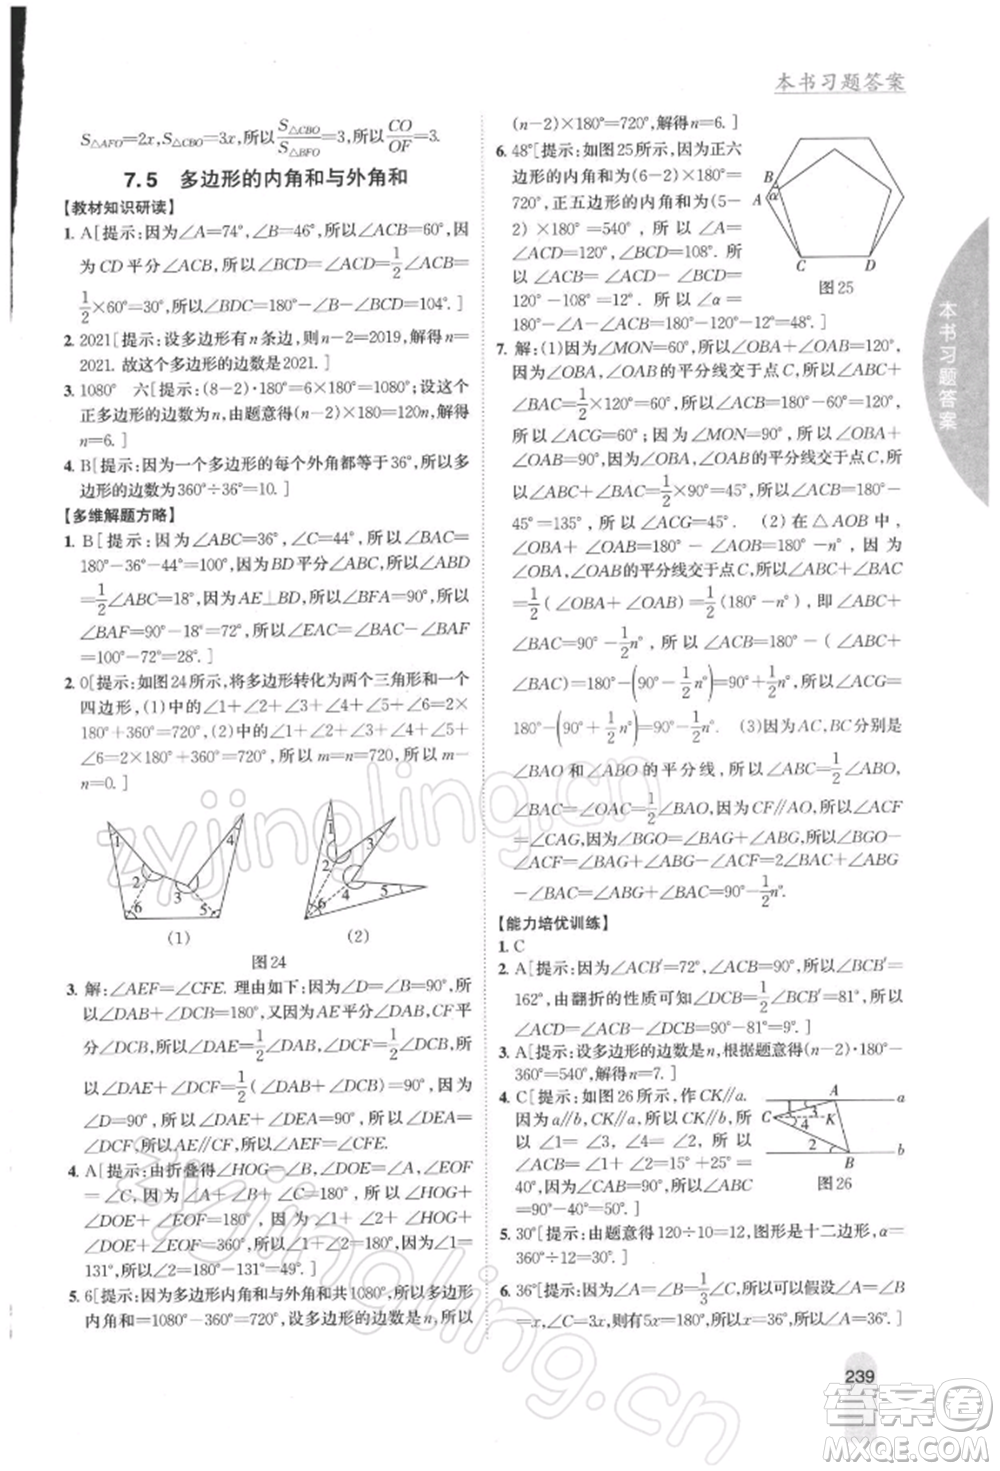 本书习题答案
S△AFO=2x,S△CBO=3x,所以S△CBO/S△BFO=3,所以CO/OF=3.
7.5 多边形的内角和与外角和
【教材知识研读】
1. A[提示:因为∠A=74°,∠B=46°,所以∠ACB=60°,因
为CD平分∠ACB,所以∠BCD=∠ACD=1/2∠ACB=
1/2×60°=30°,所以∠BDC=180°-∠B-∠BCD=104°.]
2. 2021[提示:设多边形有n条边,则n-2=2019,解得n=
2021.故这个多边形的边数是2021.]
3. 1080° 六[提示:(8-2)·180°=6×180°=1080°;设这个
正多边形的边数为n,由题意得(n-2)×180=120n,解得
n=6.]
4. B[提示:因为一个多边形的每个外角都等于36°,所以多
边形的边数为360°÷36°=10.]
【多维解题方略】
1. B[提示:因为∠ABC=36°,∠C=44°,所以∠BAC=
180°-36°-44°=100°.因为BD平分∠ABC,所以∠ABD
=1/2∠ABC=18°,因为AE⊥BD,所以∠BFA=90°,所以
∠BAF=90°-18°=72°,所以∠EAC=∠BAC-∠BAF
=100°-72°=28°.]
2. 0[提示:如图24所示,将多边形转化为两个三角形和一个
四边形,(1)中的∠1+∠2+∠3+∠4+∠5+∠6=2×
180°+360°=720°,(2)中的∠1+∠2+∠3+∠4+∠5+
∠6=2×180°+360°=720°,所以m=n=720,所以m-n
=0.]
1
4
2
3
6
5
(1)
1
3
2
4
5
6
(2)
图24
3. 解:∠AEF=∠CFE. 理由如下:因为∠D=∠B=90°,所
以∠DAB+∠DCB=180°,又因为AE平分∠DAB,CF平
分∠DCB,所以∠DAE=1/2∠DAB,∠DCF=1/2∠DCB,所
以∠DAE+∠DCF=1/2(∠DAB+∠DCB)=90°,因为
∠D=90°,所以∠DAE+∠DEA=90°,所以∠DEA=
∠DCF,所以AE∥CF,所以∠AEF=∠CFE.
4. A[提示:由折叠得∠HOG=∠B,∠DOE=∠A,∠EOF
=∠C,因为∠A+∠B+∠C=180°,所以∠HOG+
∠DOE+∠EOF=180°,因为∠1+∠2+∠HOG+
∠DOE+∠EOF=360°,所以∠1+∠2=180°,因为∠1=
131°,所以∠2=180°-131°=49°.]
5. 6[提示:因为多边形内角和与外角和共1080°,所以多边形
内角和=1080°-360°=720°,设多边形的边数是n,所以
(n-2)×180°=720°,解得n=6.]
6. 48°[提示:如图25所示,因为正六
边形的内角和为(6-2)×180°=
720°,正五边形的内角和为(5-
2)×180°=540°,所以∠ACD
=120°,∠BCD=108°,所以
∠BCA=∠ACD-∠BCD=
120°-108°=12°,所以∠α=
180°-120°-12°=48°.]
B
α
A
C
D
图25
7. 解:(1)因为∠MON=60°,所以∠OBA+∠OAB=120°,
因为∠OBA,∠OAB的平分线交于点C,所以∠ABC+
∠BAC=1/2×120°=60°,所以∠ACB=180°-60°=120°,
所以∠ACG=60°;因为∠MON=90°,所以∠OBA+
∠OAB=90°,因为∠OBA,∠OAB的平分线交于点C,所
以∠ABC+∠BAC=1/2×90°=45°,所以∠ACB=180°-
45°=135°,所以∠ACG=45°. (2)在△AOB中,
∠OBA+∠OAB=180°-∠AOB=180°-n°,因为
∠OBA,∠OAB的平分线交于点C,所以∠ABC+∠BAC
=1/2(∠OBA+∠OAB)=1/2(180°-n°),即∠ABC+
∠BAC=90°-1/2n°,所以∠ACB=180°-(∠ABC+
∠BAC)=180°-(90°-1/2n°)=90°+1/2n°,所以∠ACG=
180°-(90°+1/2n°)=90°-1/2n°. (3)因为AC,BC分别是
∠BAO和∠ABO的平分线,所以∠ABC=1/2∠ABO,
∠BAC=∠OAC=1/2∠BAO,因为CF∥OA,所以∠ACF
=∠CAG,所以∠BGO=∠BAG+∠ABG,所以∠BGO
-∠ACF=∠BAG+∠ABG-∠ACF=2∠BAC+∠ABG
-∠BAC=∠ABG+∠BAC=90°-1/2n°.
【能力培优训练】
1. C
2. A[提示:因为∠ACB′=72°,∠ACB=90°,所以∠BCB′=
162°,由翻折的性质可知∠DCB=1/2∠BCB′=81°,所以
∠ACD=∠ACB-∠DCB=90°-81°=9°.]
3. A[提示:设多边形的边数是n,根据题意得(n-2)·180°-
360°=540°,解得n=7.]
4. C[提示:如图26所示,作CK∥a.
因为a∥b,CK∥a,所以CK∥b,所
以∠1=∠3,∠4=∠2,所以
∠ACB=∠1+∠2=90°,因为
∠BAC=40°,所以∠ABC=90°-
40°=50°.]
A
a
1
3
K
C
4
2
B
b
图26
5. 30°[提示:由题意得120÷10=12,图形是十二边形,α=
360°÷12=30°.]
6. 36°[提示:因为∠A=∠B=1/3∠C,所以可以假设∠A=∠B
=x,∠C=3x,则有5x=180°,所以x=36°,所以∠A=36°.]
本书习题答案
239
zyjingling.cn
zyjingling.cn
答案圈
MXQE.COM